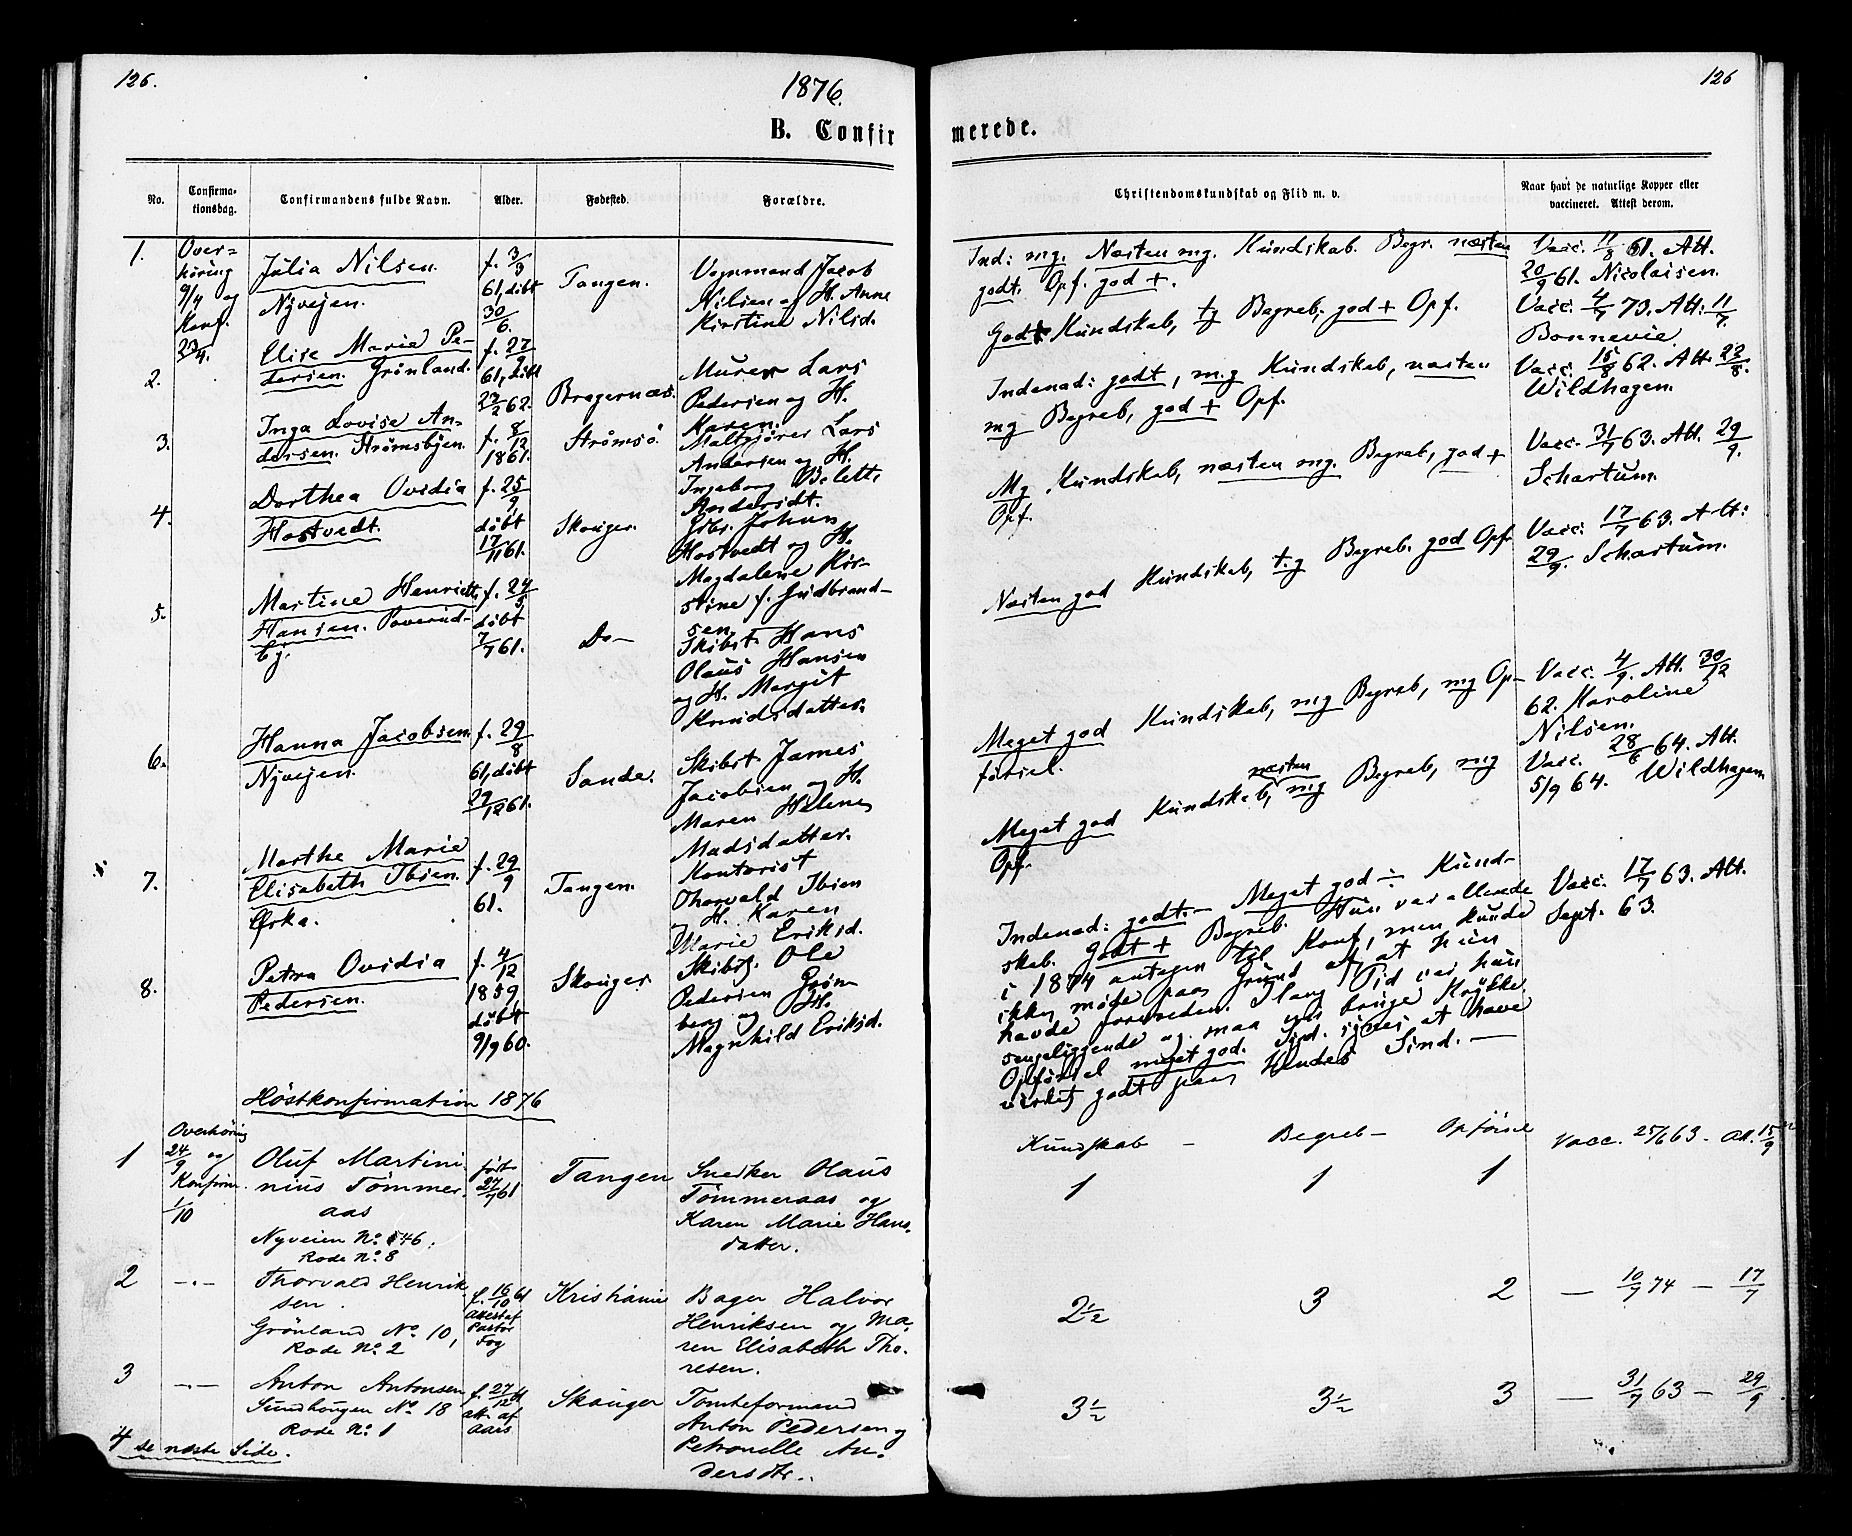 126.
1876.
126
B. Confir
merede.
No.
Confirma-
tionsdag.
Confirmandens fulde Navn.
Alder.
Fødested.
Forældre.
Christendomskundskab og Flid m. v.
Naar havt de naturlige Kopper eller
vaccineret. Attest derom.
1.
Over-
høring
9/4 og
Konf.
23/4.
Julia Nilsen.
Nyvejen.
f. 3/3
61, døbt
30/6.
Tangen.
Vognmand Jacob
Nilsen og H. Anne
Kirstine Nilsd.
Ind: mg. Næsten mg. Kundskab. Begr. næsten
godt. Opf. god +.
Vacc. 11/8 61. Att.
20/9 61. Nicolaisen.
2.
Elise Marie Pe-
dersen. Grønland.
f. 27/9
61, døbt
27/2 62.
Bragernæs.
Murer Lars
Pedersen og H.
Karen.
God + Kundskab, tg Begreb, god + Opf.
Vacc. 4/7 73. Att: 11/7.
Bonnevie.
3.
Inga Lovise An-
dersen. Strømsbyen.
f. 8/12
1861.
Strømsö.
Maltgjører Lars
Andersen og H.
Ingeborg Belette
Andersdt.
Indenad: godt, mg Kundskab, næsten
mg Begreb, god + Opf.
Vacc. 15/8 62. Att. 22/8.
Wildhagen.
4.
Dorthea Ovidia
Hostvedt.
f. 25/9
døbt
17/11 61.
Skouger.
Gbr. Johan
Hostvedt og H.
Magdalene Kir-
stine f. Gudbrand-
sen.
Mg Kundskab, næsten mg. Begreb, god +
Opf.
Vacc. 31/7 63. Att. 29/9.
Schartum.
5.
Martine Henriette
Hansen. Poverud-
bj.
f. 24/5
døbt
7/7 61.
Do—
Skibst. Hans
Olaus Hansen
og H. Margit
Knudsdatter.
Næsten god Kundskab, t.g Begreb. god Opf.
Vacc: 17/7 63. Att:
29/9. Schartum.
6.
Hanna Jacobsen
Nyvejen.
f. 29/8
61, døbt
29/12 61.
Sande.
Skibst James
Jacobsen og H.
Maren Helene
Madsdatter.
Meget god Kundskab, mg Begreb, mg Op-
førsel.
Vacc. 4/9. Att. 30/12
62. Karoline
Nilsen.
7.
Marthe Marie
Elisabeth Ibsen.
Ørka.
f. 29/9
61.
Tangen.
Kontorist
Thorvald Ibsen
og H. Karen
Marie Eriksd.
næsten
Meget god Kundskab, mg Begreb, mg
Opf.
Vacc. 28/6 64. Att.
5/9 64. Wildhagen
8.
Petra Ovidia
Pedersen.
f. 4/12
1859,
døbt
9/9 60.
Skouger
Skibstj. Ole
Pedersen Grøn-
berg og H.
Magnhild Eriksd.
Indenad: godt.— Meget god ÷ Kund-
skab. Godt + Begreb. Hun var allerede
i 1874 antagen til Konf, men kunde
ikke møde paa Grund af, at hun
havde forvreden. I lang Tid var hun
sengeliggende og maa nu bruge Krykke.
Opførsel meget god. Sind. synes at have
virket godt paa Hendes Sind.—
Vacc. 17/7 63. Att.
Sept. 63.
Høstkonfirmation 1876
Kundskab — Begreb — Opførsel
1
Overhøring
24/9 og
Konfirm.
1/10
Oluf Martini-
nius Tømmer-
aas
Nyveien No. 546,
Rode No. 8
født
27/7 61
Tangen
Snedker Olaus
Tømmeraas og
Karen Marie Hans-
datter.
1 1 1
Vacc. 25/6 63 — Att. 15/9
2
—.—
Thorvald Henrik-
sen.
Grønland No. 10,
Rode No. 2
f. 16/10 61
Attest af
Pastor
Fog
Kristiania
Bager Halvor
Henriksen og Ma-
ren Elisabeth Tho-
resen.
2½ 3 2
— 10/7 74 — 17/7
3
—.—
Anton Antonsen
Sundhougen No. 18
Rode No. 1
f. 27/12 61
att. af
Aars
Skouger
Tomteformand
Anton Pedersen og
Petronelle An-
dersdtr.
3½ 3½ 3
— 31/7 63 — 29/9.
4 se næste Side.